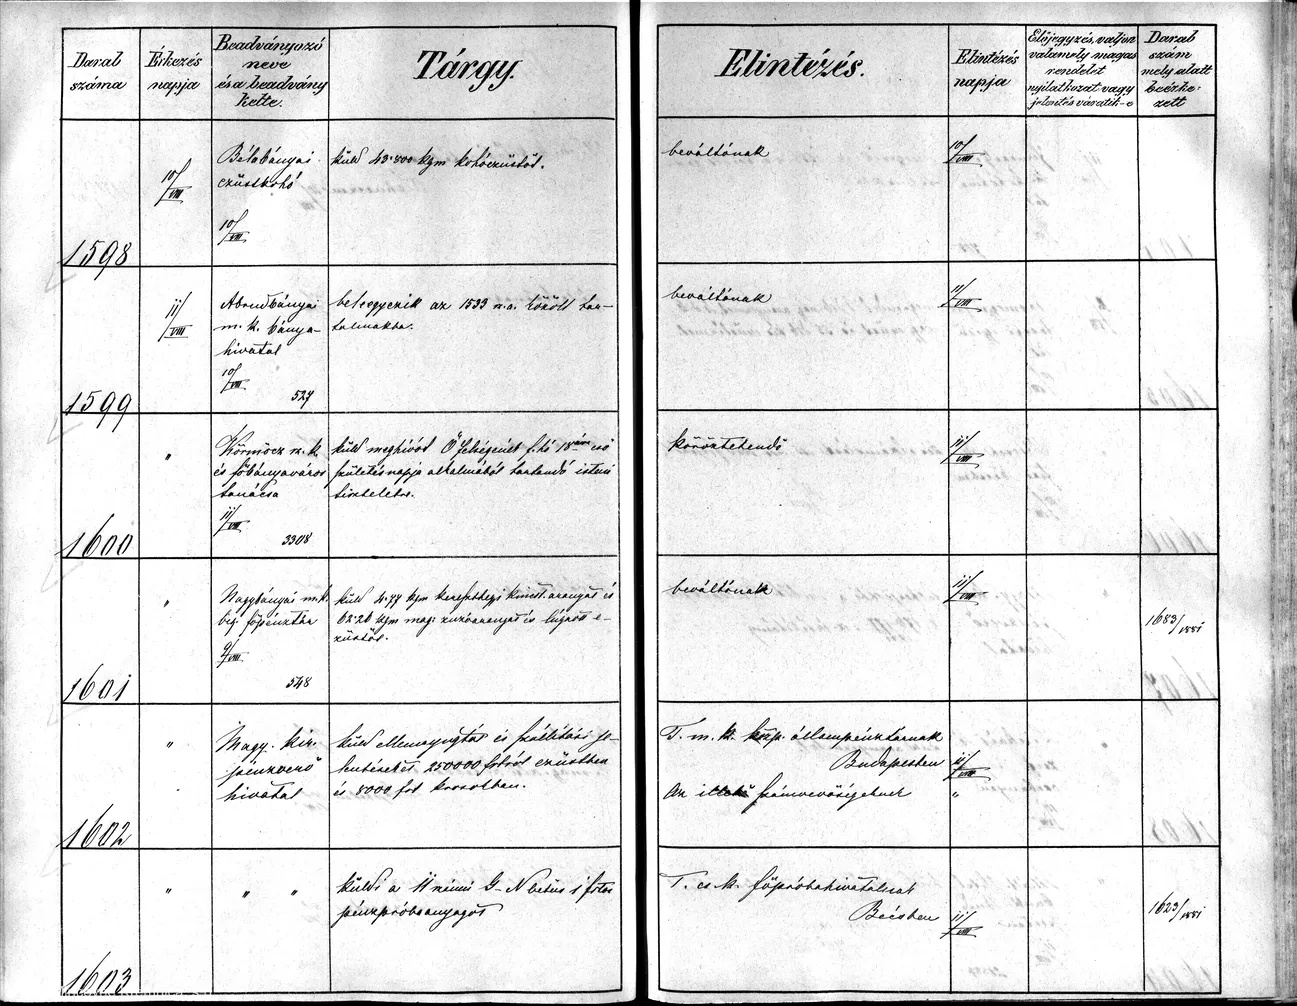 Darab száma
Érkezés napja
Beadványozó neve és a beadvány kelte.
Tárgy.
Elintézés.
Elintézés napja
Előjegyzés, valjon valamely magas rendelet nyilatkozat vagy jelentés váratik-e
Darab szám mely alatt beérkezett
1598
10/VIII
Bélabányai
ezüstkohó
10/VIII
küld 43·400 kgm kohóezüstöt.
beváltónak
10/VIII
1599
11/VIII
Abrudbányai
m. k. bánya-
hivatal
10/VIII
527
beleegyezik az 1533 n.a. közölt tar-
talmakba.
beváltónak
11/VIII
1600
"
Körmöcz sz. k.
és főbányaváros
tanácsa
11/VIII
3308
küld meghívót Ő felségének f. hó 18án eső
születésnapja alkalmából tartandó isteni
tiszteletre.
köröztetendő
11/VIII
1601
"
Nagybányai m. k.
főpénztár
9/VIII
548
küld 4·77 kgm aranyat és
62·20 kgm zúzóaranyat és lúgzott e-
züstöt.
beváltónak
11/VIII
1683/1881
1602
"
Magy. kir.
pénzverő
hivatal
küld ellennyugtát és szállítási je-
lentéseket 250000 frtról ezüstben
és 8000 frt
T. m. k. közp. állampénztárnak
Budapesten
11/VIII
Az illető számvevőségeknek
"
1603
"
" "
küldi a 11 rémű G-N betűs 1 frtos
pénzpróbaanyagot
T. cs. k. főpróbahivatalnak
Bécsben
11/VIII
1623/1881